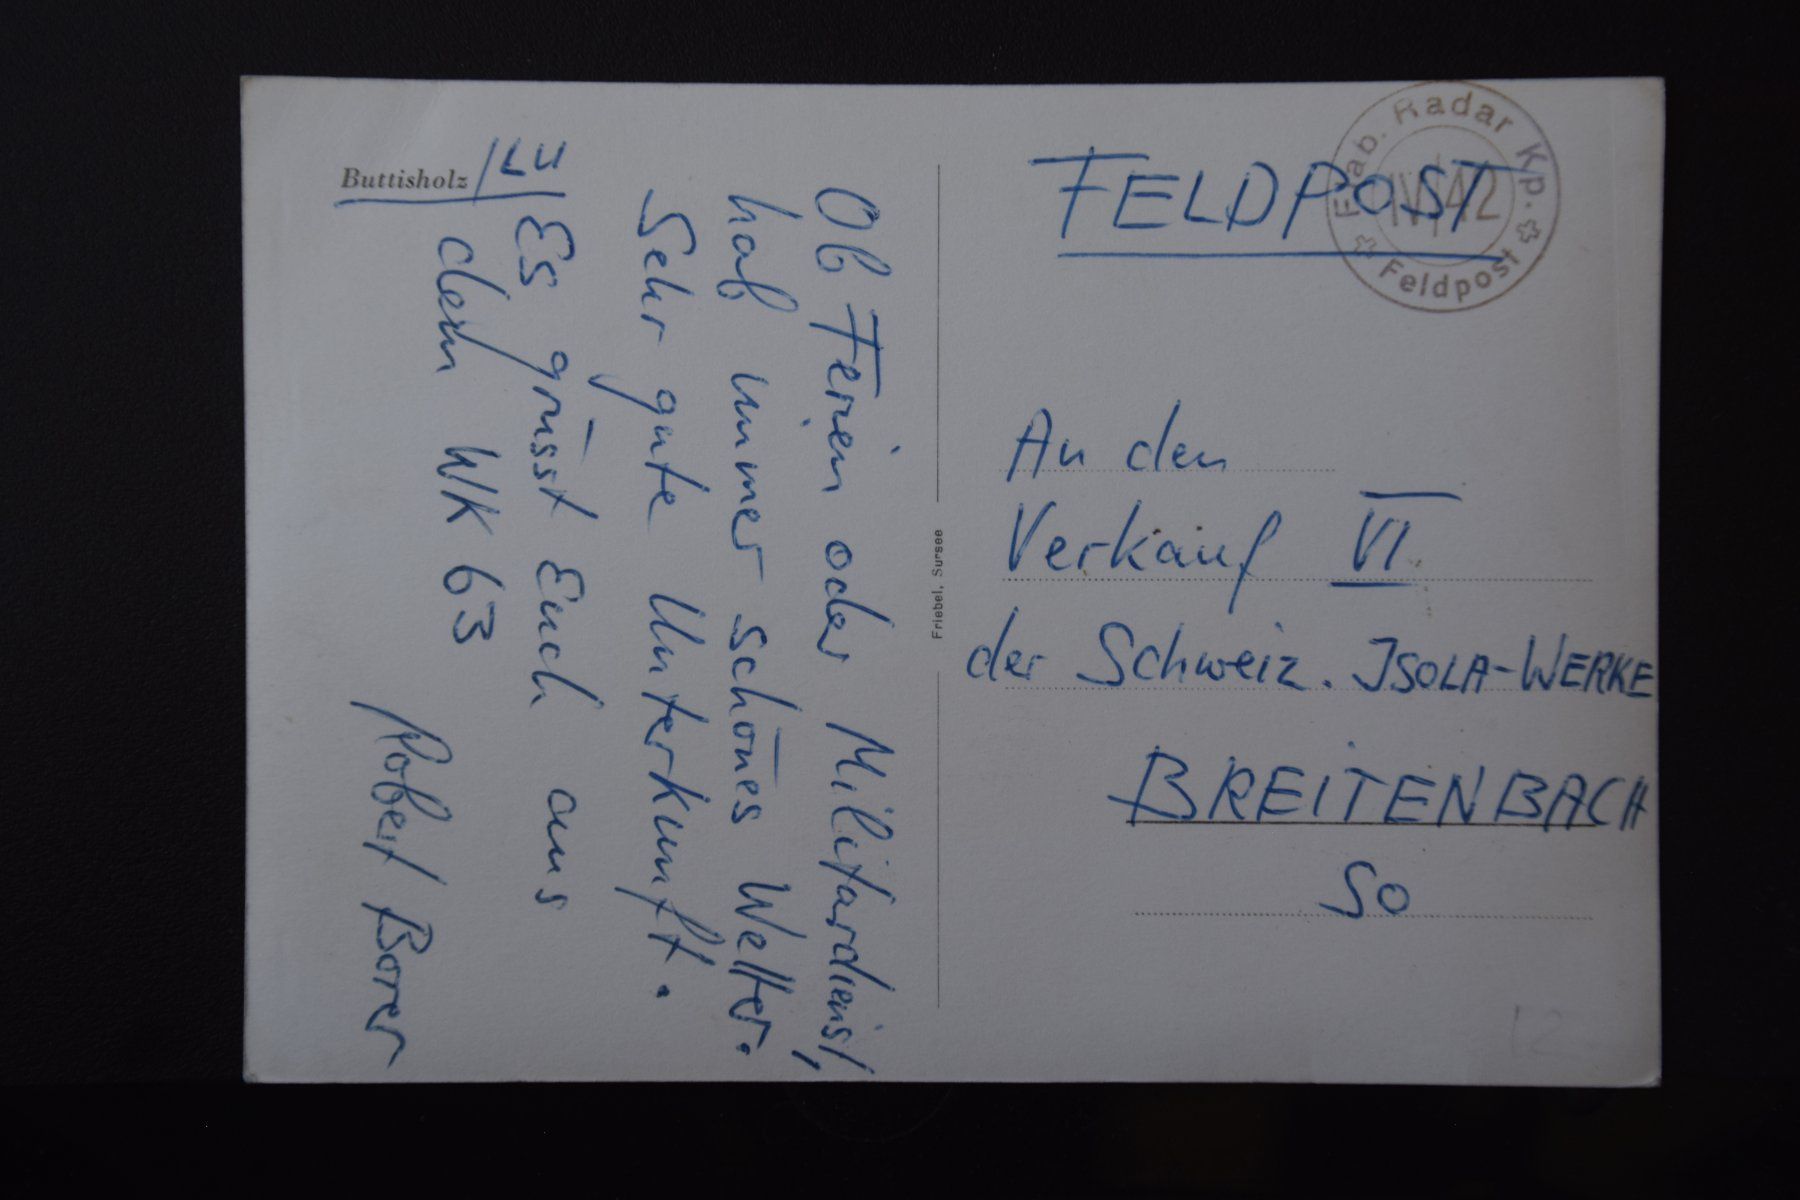 Buttisholz /LU
Ob Ferien oder Militärdienst,
hab immer schönes Wetter.
Sehr gute Unterkunft.
Es grüsst Euch aus
dem WK 63
Robert Borer
Friebel, Sursee
FELDPOST
Flab. Radar Kp.
IV/42
Feldpost
An den
Verkauf VI
der Schweiz. ISOLA-WERKE
BREITENBACH
SO
12